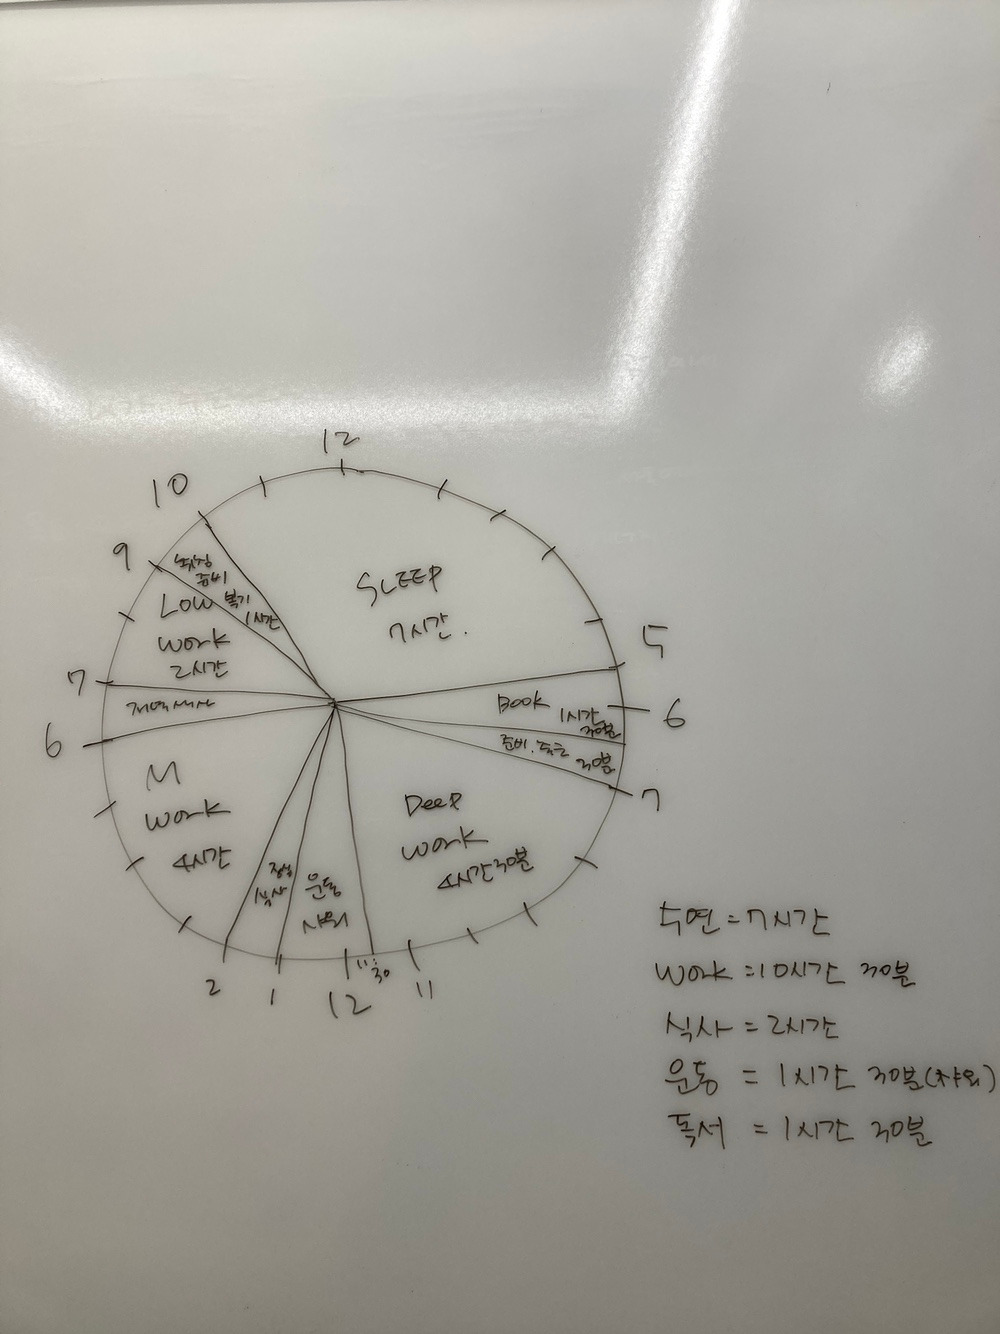 12
10
9
취침
준비
복기
1시간
LOW
work
2시간
SLEEP
7시간.
5
7
저녁식사
BOOK 1시간
30분
6
준비.
30분
7
6
M
work
4시간
점심
식사
운동
샤워
Deep
work
4시간30분
2
1
12
11:30
11
수면=7시간
work=10시간 30분
식사=2시간
운동 = 1시간 30분(샤워)
독서 = 1시간 30분